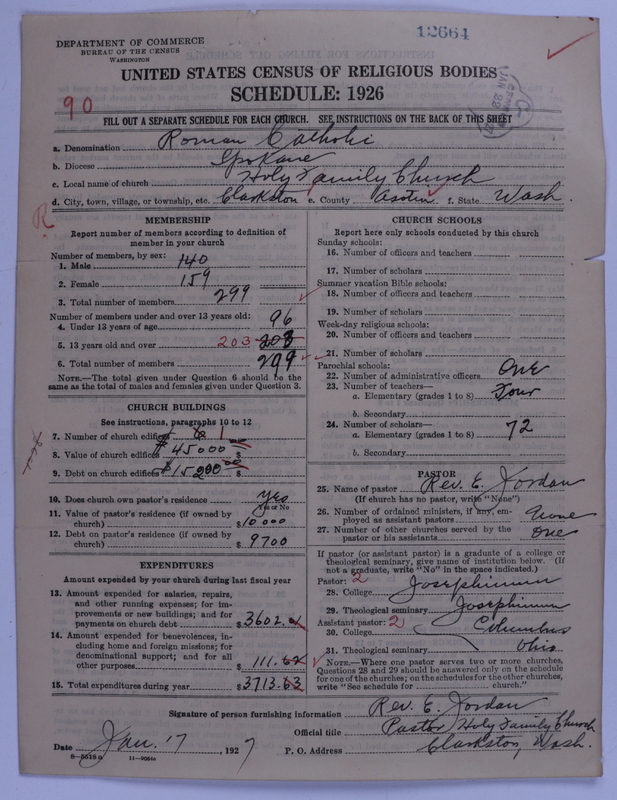 12664
DEPARTMENT OF COMMERCE
BUREAU OF THE CENSUS
WASHINGTON
UNITED STATES CENSUS OF RELIGIOUS BODIES
SCHEDULE: 1926
90
FILL OUT A SEPARATE SCHEDULE FOR EACH CHURCH. SEE INSTRUCTIONS ON THE BACK OF THIS SHEET
a. Denomination Roman Catholic
b. Diocese Spokane
c. Local name of church Holy Family Church
d. City, town, village, or township, etc. Clarkston e. County Asotin f. State Wash.
R
MEMBERSHIP
Report number of members according to definition of
member in your church
Number of members, by sex:
1. Male 140
2. Female 159
3. Total number of members 299
Number of members under and over 13 years old:
4. Under 13 years of age 96
5. 13 years old and over 203 203
6. Total number of members 299
NOTE.—The total given under Question 6 should be the
same as the total of males and females given under Question 3.
CHURCH BUILDINGS
See instructions, paragraphs 10 to 12
7. Number of church edifices 1
8. Value of church edifices $45000
9. Debt on church edifices $15200
10. Does church own pastor's residence Yes
Yes or No
11. Value of pastor's residence (if owned by
church) $10000
12. Debt on pastor's residence (if owned by
church) $9700
EXPENDITURES
Amount expended by your church during last fiscal year
13. Amount expended for salaries, repairs,
and other running expenses; for im-
provements or new buildings; and for
payments on church debt $3602.01
14. Amount expended for benevolences, in-
cluding home and foreign missions; for
denominational support; and for all
other purposes $111.62
15. Total expenditures during year $3713.63
CHURCH SCHOOLS
Report here only schools conducted by this church
Sunday schools:
16. Number of officers and teachers
17. Number of scholars
Summer vacation Bible schools:
18. Number of officers and teachers
19. Number of scholars
Week-day religious schools:
20. Number of officers and teachers
21. Number of scholars
Parochial schools:
22. Number of administrative officers One
23. Number of teachers—
a. Elementary (grades 1 to 8) Four
b. Secondary
24. Number of scholars—
a. Elementary (grades 1 to 8) 72
b. Secondary
PASTOR
25. Name of pastor Rev. E. Jordan
(If church has no pastor, write "None")
26. Number of ordained ministers, if any, em-
ployed as assistant pastors None
27. Number of other churches served by the
pastor or his assistants One
If pastor (or assistant pastor) is a graduate of a college or
theological seminary, give name of institution below. (If
not a graduate, write "No" in the space indicated.)
Pastor: 2
28. College Josephinum
29. Theological seminary Josephinum
Assistant pastor: 2
30. College Columbus
31. Theological seminary Ohio
NOTE.—Where one pastor serves two or more churches,
Questions 28 and 29 should be answered only on the schedule
for one of the churches; on the schedules for the other churches,
write "See schedule for church."
Signature of person furnishing information Rev. E. Jordan
Official title Pastor Holy Family Church
Date Jan. 17 , 1927 P. O. Address Clarkston, Wash.
8-5518a 11-9564a